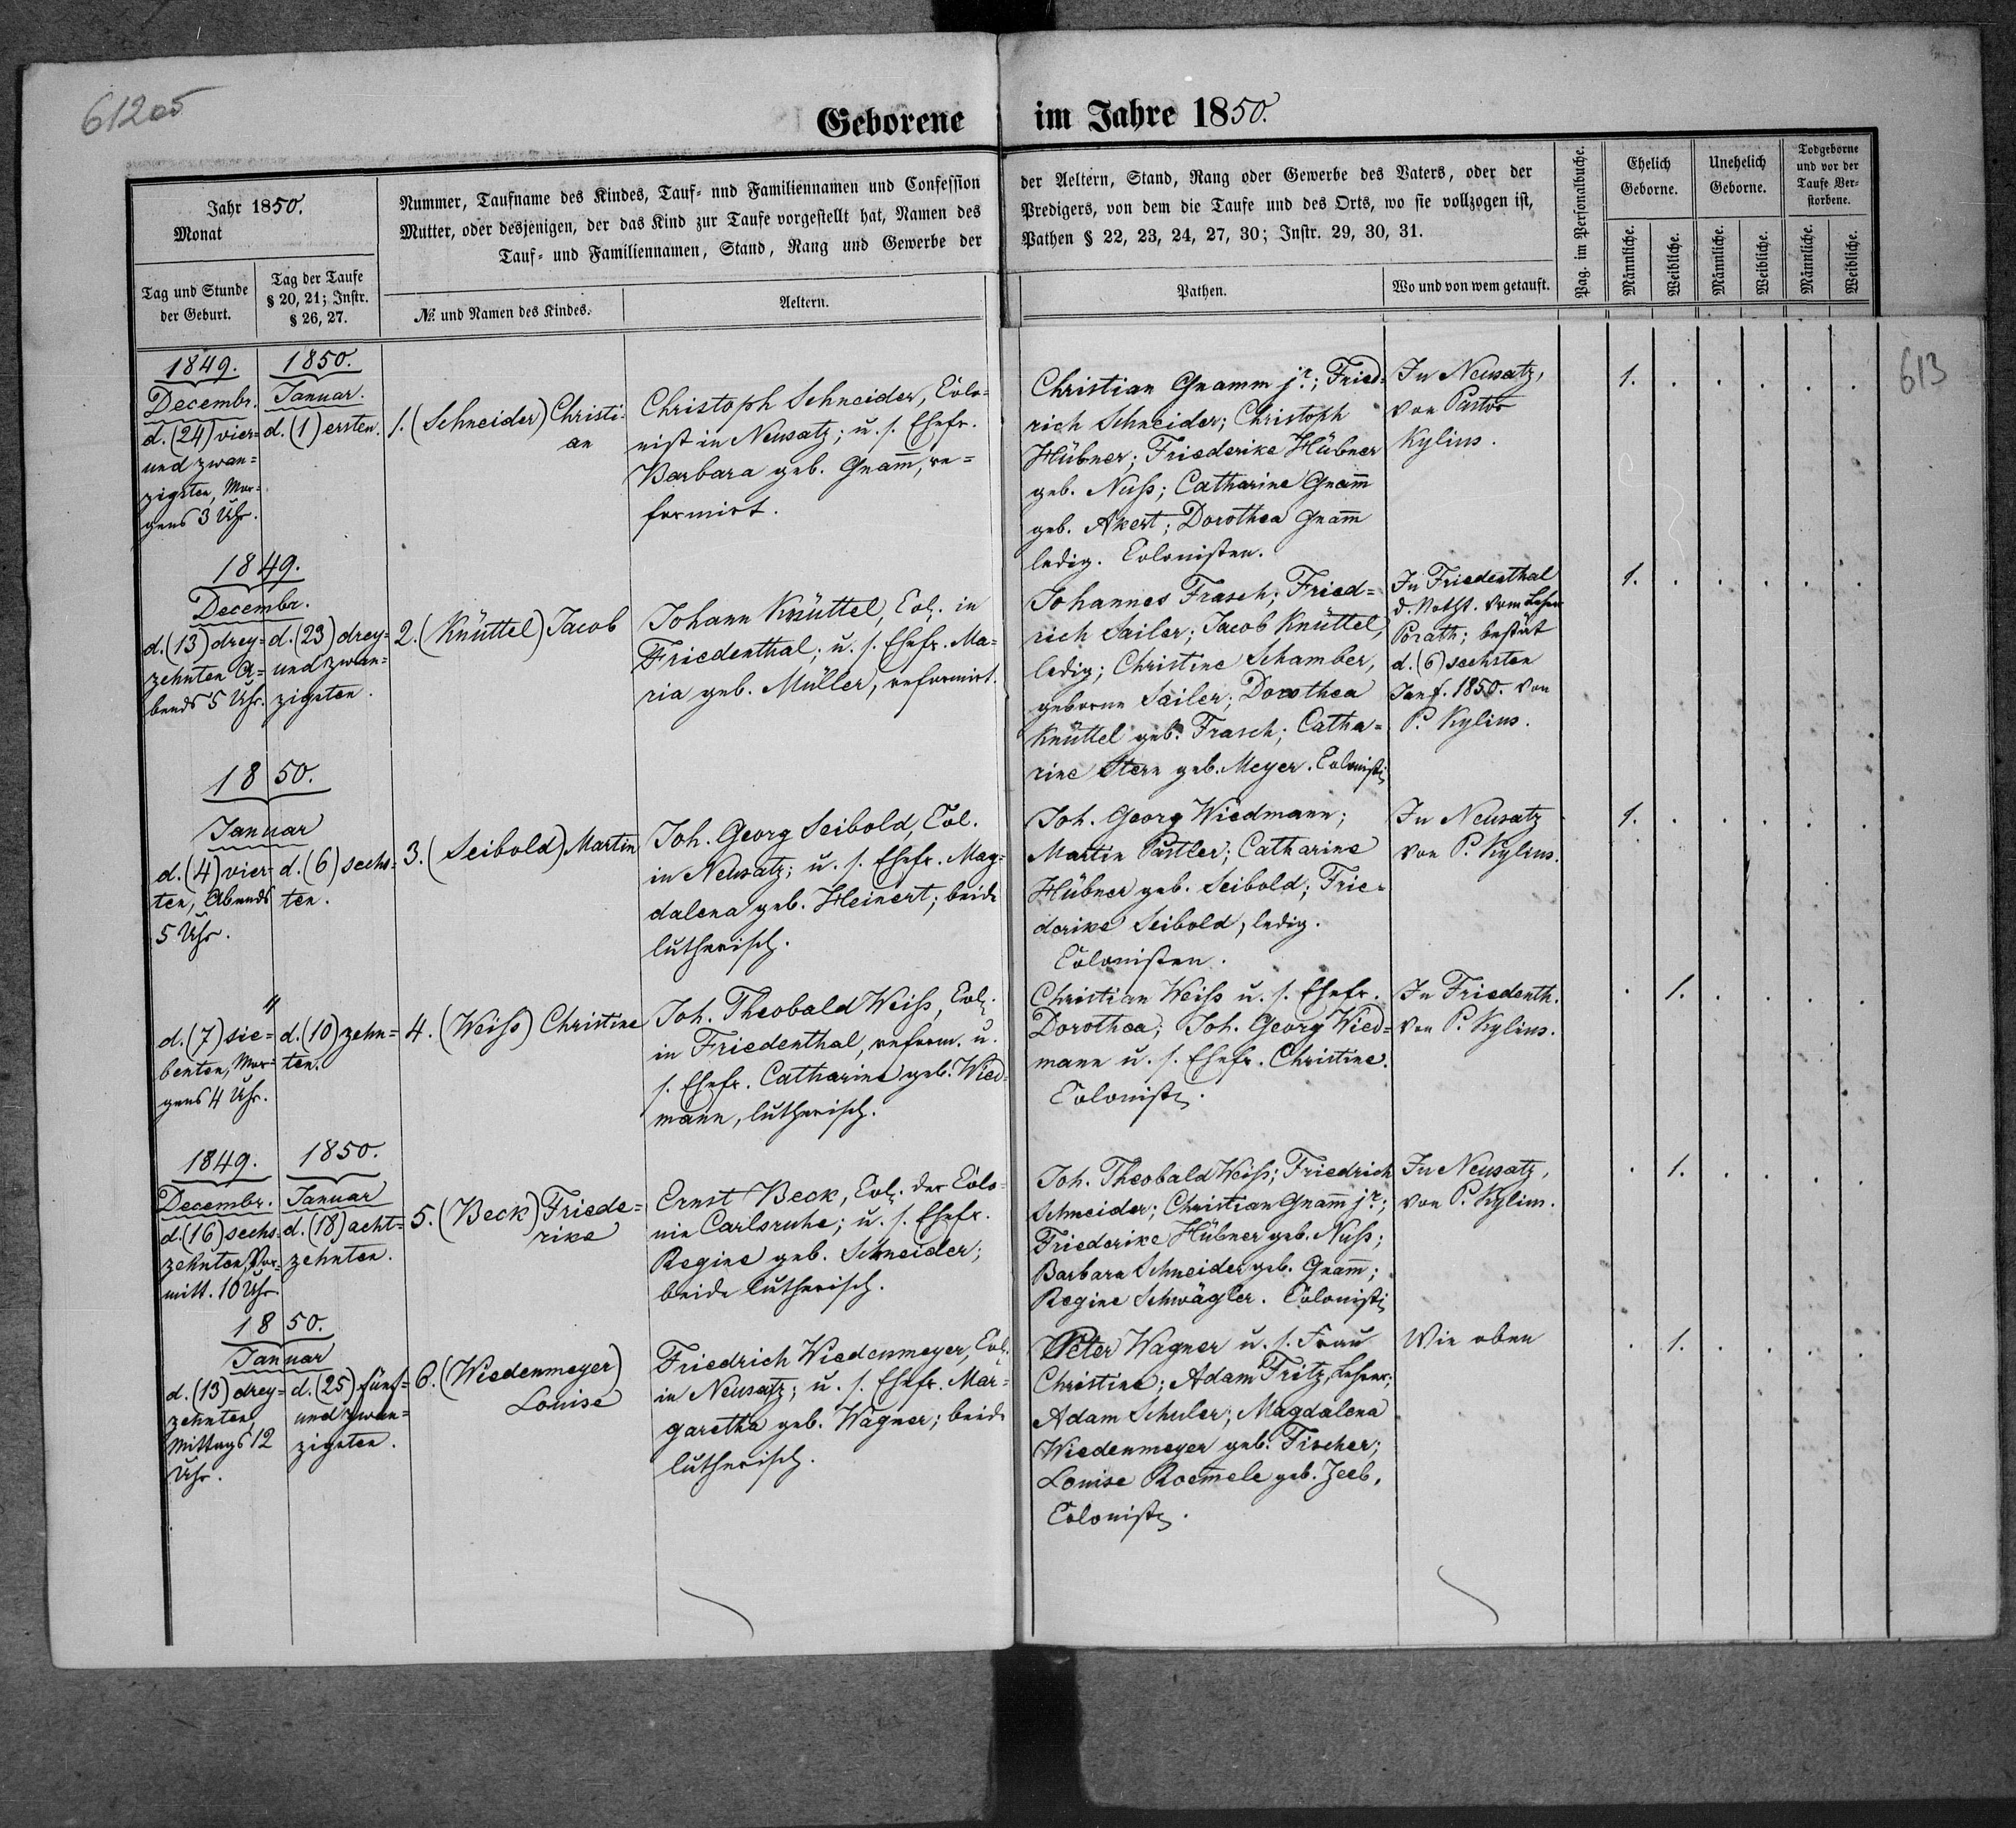 612об
613
Geborene im Jahre 1850.
Jahr 1850.
Monat
Tag und Stunde
der Geburt.
Tag der Taufe
§ 20, 21; Instr.
§ 26, 27.
Nummer, Taufname des Kindes, Tauf- und Familiennamen und Confession
Mutter, oder desjenigen, der das Kind zur Taufe vorgestellt hat, Namen des
Tauf- und Familiennamen, Stand, Rang und Gewerbe der
№. und Namen des Kindes.
Aeltern.
der Aeltern, Stand, Rang oder Gewerbe des Vaters, oder der
Predigers, von dem die Taufe und des Orts, wo sie vollzogen ist,
Pathen § 22, 23, 24, 27, 30; Instr. 29, 30, 31.
Pathen.
Wo und von wem getauft.
Pag. im Personalbuche.
Ehelich
Geborne.
Unehelich
Geborne.
Todgeborne
und vor der
Taufe Ver-
storbene.
Männliche.
Weibliche.
Männliche.
Weibliche.
Männliche.
Weibliche.
1849.
Decembr.
d. (24) vier=
und zwan=
zigsten, Mor=
gens 3 Uhr.
1850.
Januar.
d. (1) ersten.
1. (Schneider) Christi-
an
Christoph Schneider, Colo=
nist in Neusatz; u. s. Ehefr.
Barbara geb. Gnam̄, re=
formirt.
Christian Gnamm jr.; Fried=
rich Schneider; Christoph
Hübner; Friederike Hübner
geb. Nuß; Catharine Gnam̄
geb. Akert; Dorothea Gnam̄
ledig. Colonisten.
In Neusatz,
von Pastor
Kylius.
1. . . . . .
1849.
Decembr.
d. (13) drey=
zehnten A=
bends 5 Uhr.
d. (23) drey=
und zwan=
zigsten.
2. (Knüttel) Jacob
Johann Knüttel, Col. in
Friedenthal; u. s. Ehefr. Ma=
ria geb. Müller, reformirt.
Johannes Frasch; Fried=
rich Sailer; Jacob Knüttel,
ledig; Christine Schamber,
geborne Sailer; Dorothea
Knüttel geb. Frasch; Catha=
rine Stern geb. Meyer. Colonist.
In Friedenthal
d. Notht. vom
Porath; bestät
d. (6) sechsten
1850. von
P. Kylius.
1. . . . . .
1850.
Januar
d. (4) vier-
ten, Abends
5 Uhr.
d. (6) sechs-
ten.
3. (Seibold) Martin
Joh. Georg Seibold, Col.
in Neusatz; u. s. Ehefr. Mag=
dalena geb. Heinert; beide
lutherisch.
Joh. Georg Wiedmann;
Martin Pästler; Catharine
Hübner geb. Seibold; Frie-
derike Seibold, ledig.
Colonisten.
In Neusatz
von P. Kylius.
1. . . . . .
"
d. (7) sie=
benten, Mor=
gens 4 Uhr.
d. (10) zehn=
ten.
4. (Weiß) Christine
Joh. Theobald Weiß, Col.
in Friedenthal, reform. u.
s. Ehefr. Catharine geb. Wied=
mann, lutherisch.
Christian Weiß u. s. Ehefr.
Dorothea; Joh. Georg Wied=
mann u. s. Ehefr. Christine.
Colonist.
In Friedenth.
von P. Kylius.
. 1. . . . .
1849.
Decembr.
d. (16) sechs-
zehnten, Vor-
mitt. 10 Uhr
1850.
Januar
d. (18) acht=
zehnten.
5. (Beck) Friede=
rike
Ernst Beck, Col. der Colo=
nie Carlsruhe; u. s. Ehefr.
Regine geb. Schneider;
beide lutherisch.
Joh. Theobald Weiß; Friedrich
Schneider; Christian Gnam̄ jr.;
Friederike Hübner geb. Nuß;
Barbara Schneider geb. Gnam̄;
Regine Schwägler. Colonist.
In Neusatz,
von P. Kylius.
. 1. . . . .
1850.
Januar
d. (13) drey=
zehnten,
Mittags 12
Uhr.
d. (25) fünf=
und zwan=
zigsten.
6. (Wiedenmeyer)
Louise
Friedrich Wiedenmeyer, Col.
in Neusatz; u. s. Ehefr. Mar=
garetha geb. Wagner; beide
lutherisch.
Peter Wagner u. s. Frau
Christine; Adam Fritz, Lehrer;
Adam Schuler; Magdalena
Wiedenmeyer geb. Fischer;
Louise Roem̄ele geb. Zeeb,
Colonist.
Wie oben
. 1. . . . .